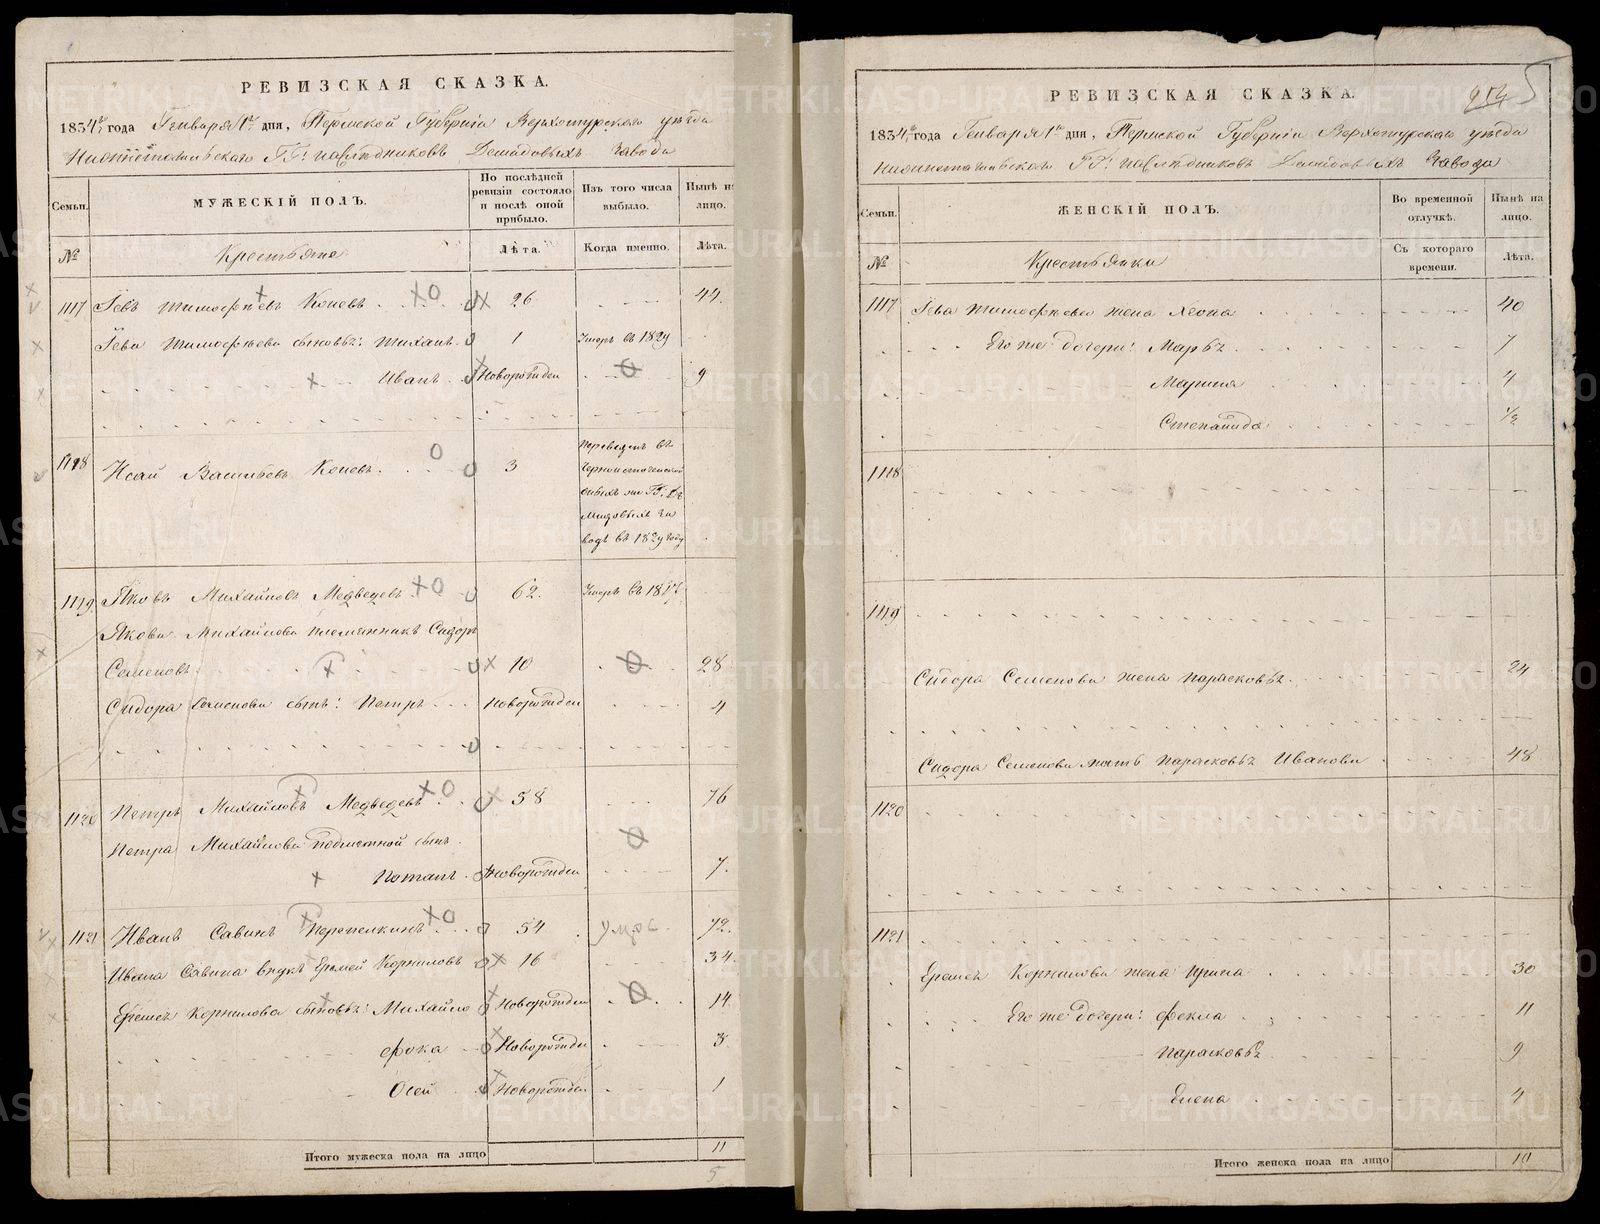 РЕВИЗСКАЯ СКАЗКА.
1834 года Генваря 1 дня, Пермской Губернiи Верхотурскаго уѣзда
Нижнетагильскаго ГГ: наслѣдниковъ Демидовыхъ завода
Семьи.
МУЖЕСКIЙ ПОЛЪ.
По послѣдней ревизiи состояло и послѣ оной прибыло.
Изъ того числа выбыло.
Нынѣ на лицо.
№
Крестьяне
Лѣта.
Когда именно.
Лѣта.
1117 Iевъ Тимофѣевъ Коневъ 26 44.
Iева Тимофѣева сыновья: Тиханъ 1 Умеръ въ 1829
Иванъ Новорожден 9
1118 Исай Васильевъ Коневъ 3 переведенъ въ
ГГ: Де
мидовыхъ за
водъ въ 1829 году
1119 Яковъ Михайловъ Медведевъ 62. Умеръ въ
Якова Михайлова племянникъ Сидоръ
Семеновъ 10 28
Сидора Семенова сынъ: Петръ Новорожден 4
1120 Петръ Михайловъ Медведевъ 58 76
Петра Михайлова сынъ
Потапъ Новорожден 7.
1121 Иванъ Савинъ Перепелкинъ 54 умре 72.
Ивана Савина внукъ Еремей Корниловъ 16 34
Еремея Корнилова сыновья: Михайло Новорожден 14
Фока Новорожден 3
Осей Новорожден 1
Итого мужеска пола на лицо 11
5
РЕВИЗСКАЯ СКАЗКА.
5
1834 года Генваря 1 дня, Пермской Губернiи Верхотурскаго уѣзда
Нижнетагильскаго ГГ: наслѣдниковъ Демидовыхъ завода
Семьи.
ЖЕНСКIЙ ПОЛЪ.
Во временной отлучкѣ.
Нынѣ на лицо.
№
Крестьянки
Съ котораго времени.
Лѣта.
1117 Iева Тимофѣева жена 40
Его же дочери: Марья 7
Марина 4
Степанида 1/2
1118
1119
Сидора Семенова жена Парасковья 24
Сидора Семенова мать Парасковья Иванова 48
1120
1121
Еремея Корнилова жена Ирина 30
Его же дочери: Фекла 11
Парасковья 9
Елена 4
Итого женска пола на лицо 10
METRIKI.GASO-URAL.RU